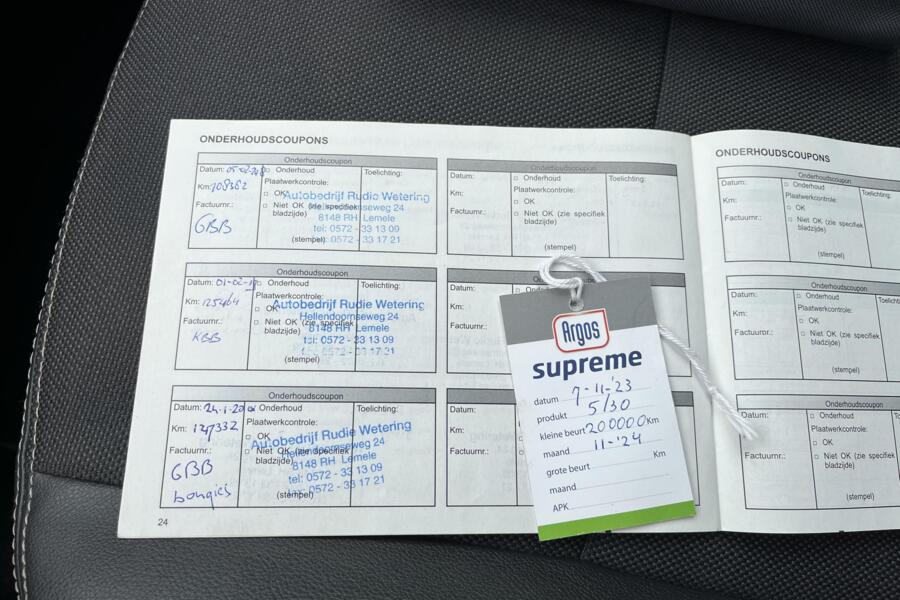 ONDERHOUDSCOUPONS
Onderhoudscoupon
Datum: 05-02-
Onderhoud
Toelichting:
Km: 108362
Plaatwerkcontrole:
OK
Niet OK (zie specifiek
bladzijde)
Factuurnr.:
GBB
(stempel)
Autobedrijf Rudie Wetering
Hellendoornseweg 24
8148 RH Lemele
tel: 0572 - 33 13 09
0572 - 33 17 21
Onderhoudscoupon
Datum: 01-02-
Onderhoud
Toelichting:
Km: 125464
Plaatwerkcontrole:
OK
Niet OK (zie specifiek
bladzijde)
Factuurnr.:
KBB
(stempel)
Autobedrijf Rudie Wetering
Hellendoornseweg 24
8148 RH Lemele
tel: 0572 - 33 13 09
0572 - 33 17 21
Onderhoudscoupon
Datum: 24-1-20
Onderhoud
Toelichting:
Km: 127332
Plaatwerkcontrole:
OK
Niet OK (zie specifiek
bladzijde)
Factuurnr.:
GBB
bougies
(stempel)
Autobedrijf Rudie Wetering
Hellendoornseweg 24
8148 RH Lemele
tel: 0572 - 33 13 09
fax: 0572 - 33 17 21
24
Onderhoudscoupon
Datum:
Onderhoud
Toelichting:
Km:
Plaatwerkcontrole:
OK
Factuurnr.:
Niet OK (zie specifiek
bladzijde)
(stempel)
Datum:
Km:
Factuurnr.:
Datum:
Km:
Factuurnr.:
Argos
supreme
datum 7-11-'23
produkt 5/30
kleine beurt 200000 Km
maand 11-'24
grote beurt Km
maand
APK
ONDERHOUDSCOUPONS
Onderhoudscoupon
Datum:
Onderhoud
Toelichting:
Km:
Plaatwerkcontrole:
OK
Factuurnr.:
Niet OK (zie specifiek
bladzijde)
(stempel)
Onderhoudscoupon
Datum:
Onderhoud
Km:
Plaatwerkcontrole:
OK
Factuurnr.:
Niet OK (zie specifiek
bladzijde)
(stempel)
Onderhoudscoupon
Datum:
Onderhoud
Toelichting:
Plaatwerkcontrole:
OK
Factuurnr.:
Niet OK (zie specifiek
bladzijde)
(stempel)